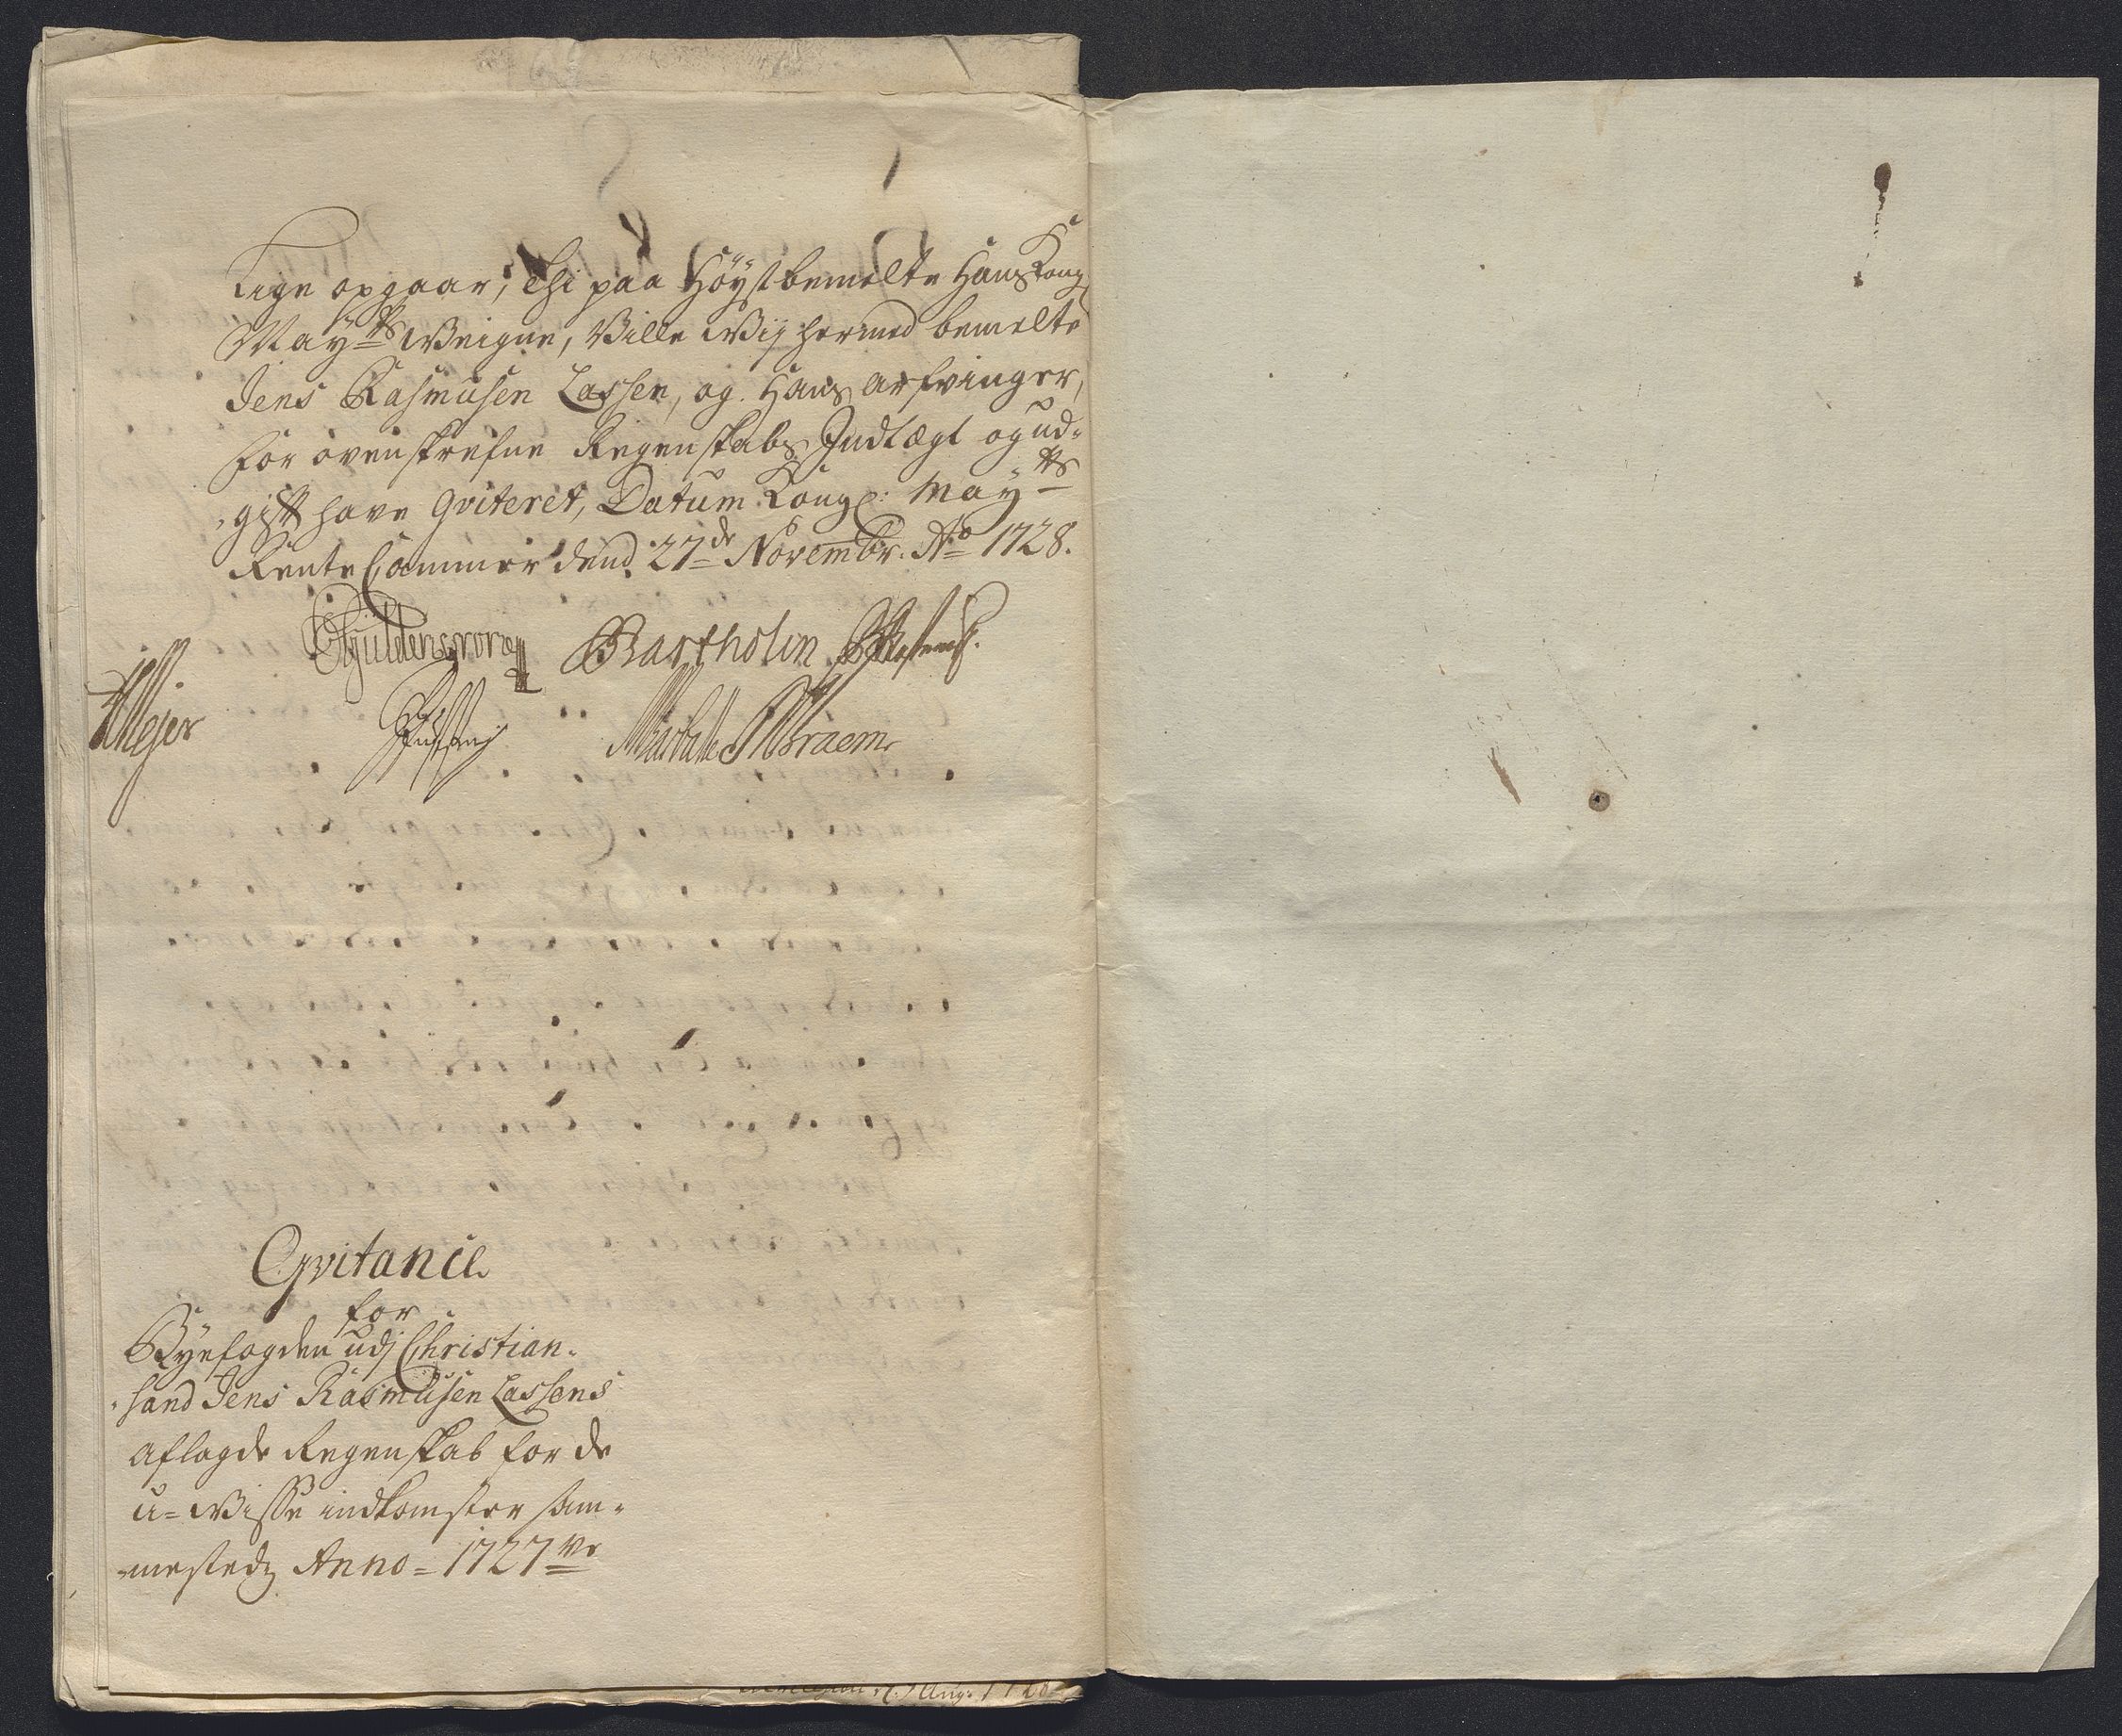 Lige opgaar; Thi paa Höystbemelte Hans Kong
May:ts Weigne, Ville Wij hermed bemelte
Jens Rasmusen Lassen, og Hans arfvinger,
for ovenskrefne Regenskabs Indtægt og ud-
gifft have Qviteret, Datum Kongl: May:ts
Rente Cammer dend 27de Novembr. Ao 1728.
Bartholin
Mejer Braem
Qvitance
for
Byefogden udj Christian-
sand Jens Rasmusen Lassens
aflagde Regenskab for de
u-Wisse indkomster sam-
mesteds Anno = 1727ve
Aug: 1728